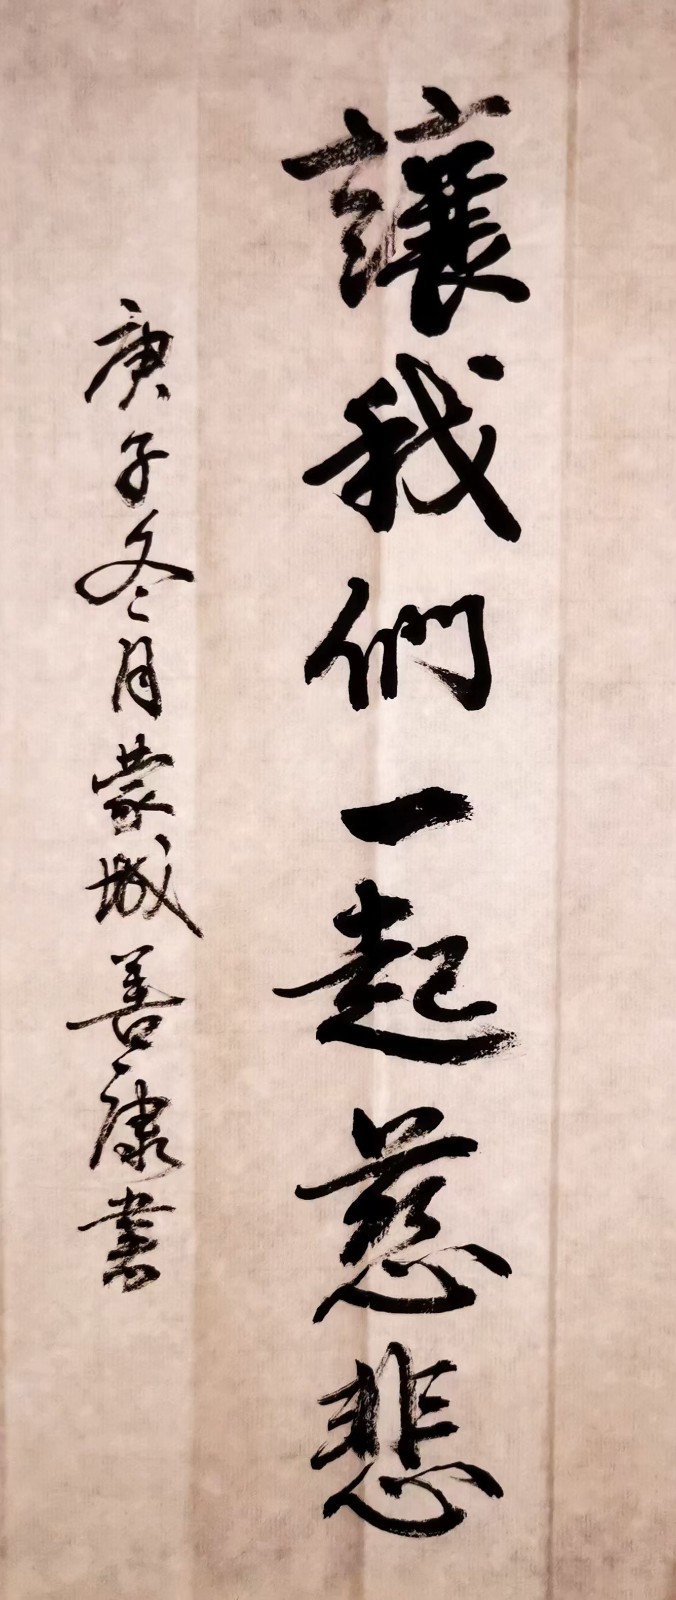 讓我們一起慈悲
庚子冬月蒙城善康書